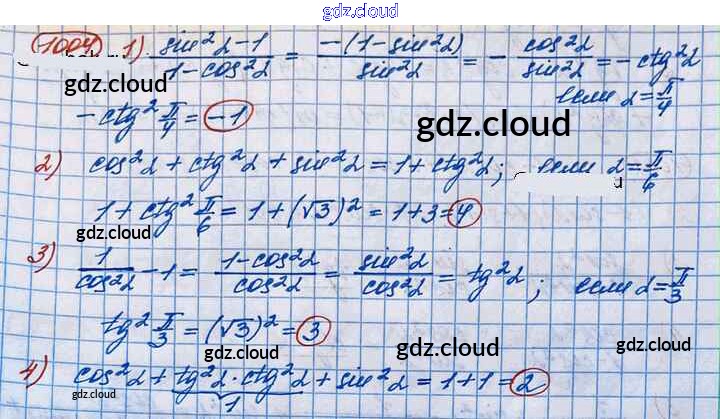 gdz.cloud
1004 1) (sin²α-1)/(1-cos²α) = (-(1-sin²α))/(sin²α) = -(cos²α)/(sin²α) = -ctg²α
gdz.cloud
если α=π/4
-ctg² π/4 = -1
gdz.cloud
2) cos²α + ctg²α + sin²α = 1+ctg²α; если α=π/6
1+ctg² π/6 = 1+(√3)² = 1+3=4
gdz.cloud
3) 1/(cos²α) -1 = (1-cos²α)/(cos²α) = (sin²α)/(cos²α) = tg²α; если α=π/3
gdz.cloud
tg² π/3 = (√3)² = 3
gdz.cloud
gdz.cloud
gdz.cloud
4) cos²α + tg²α·ctg²α + sin²α = 1+1=2
gdz.cloud
1